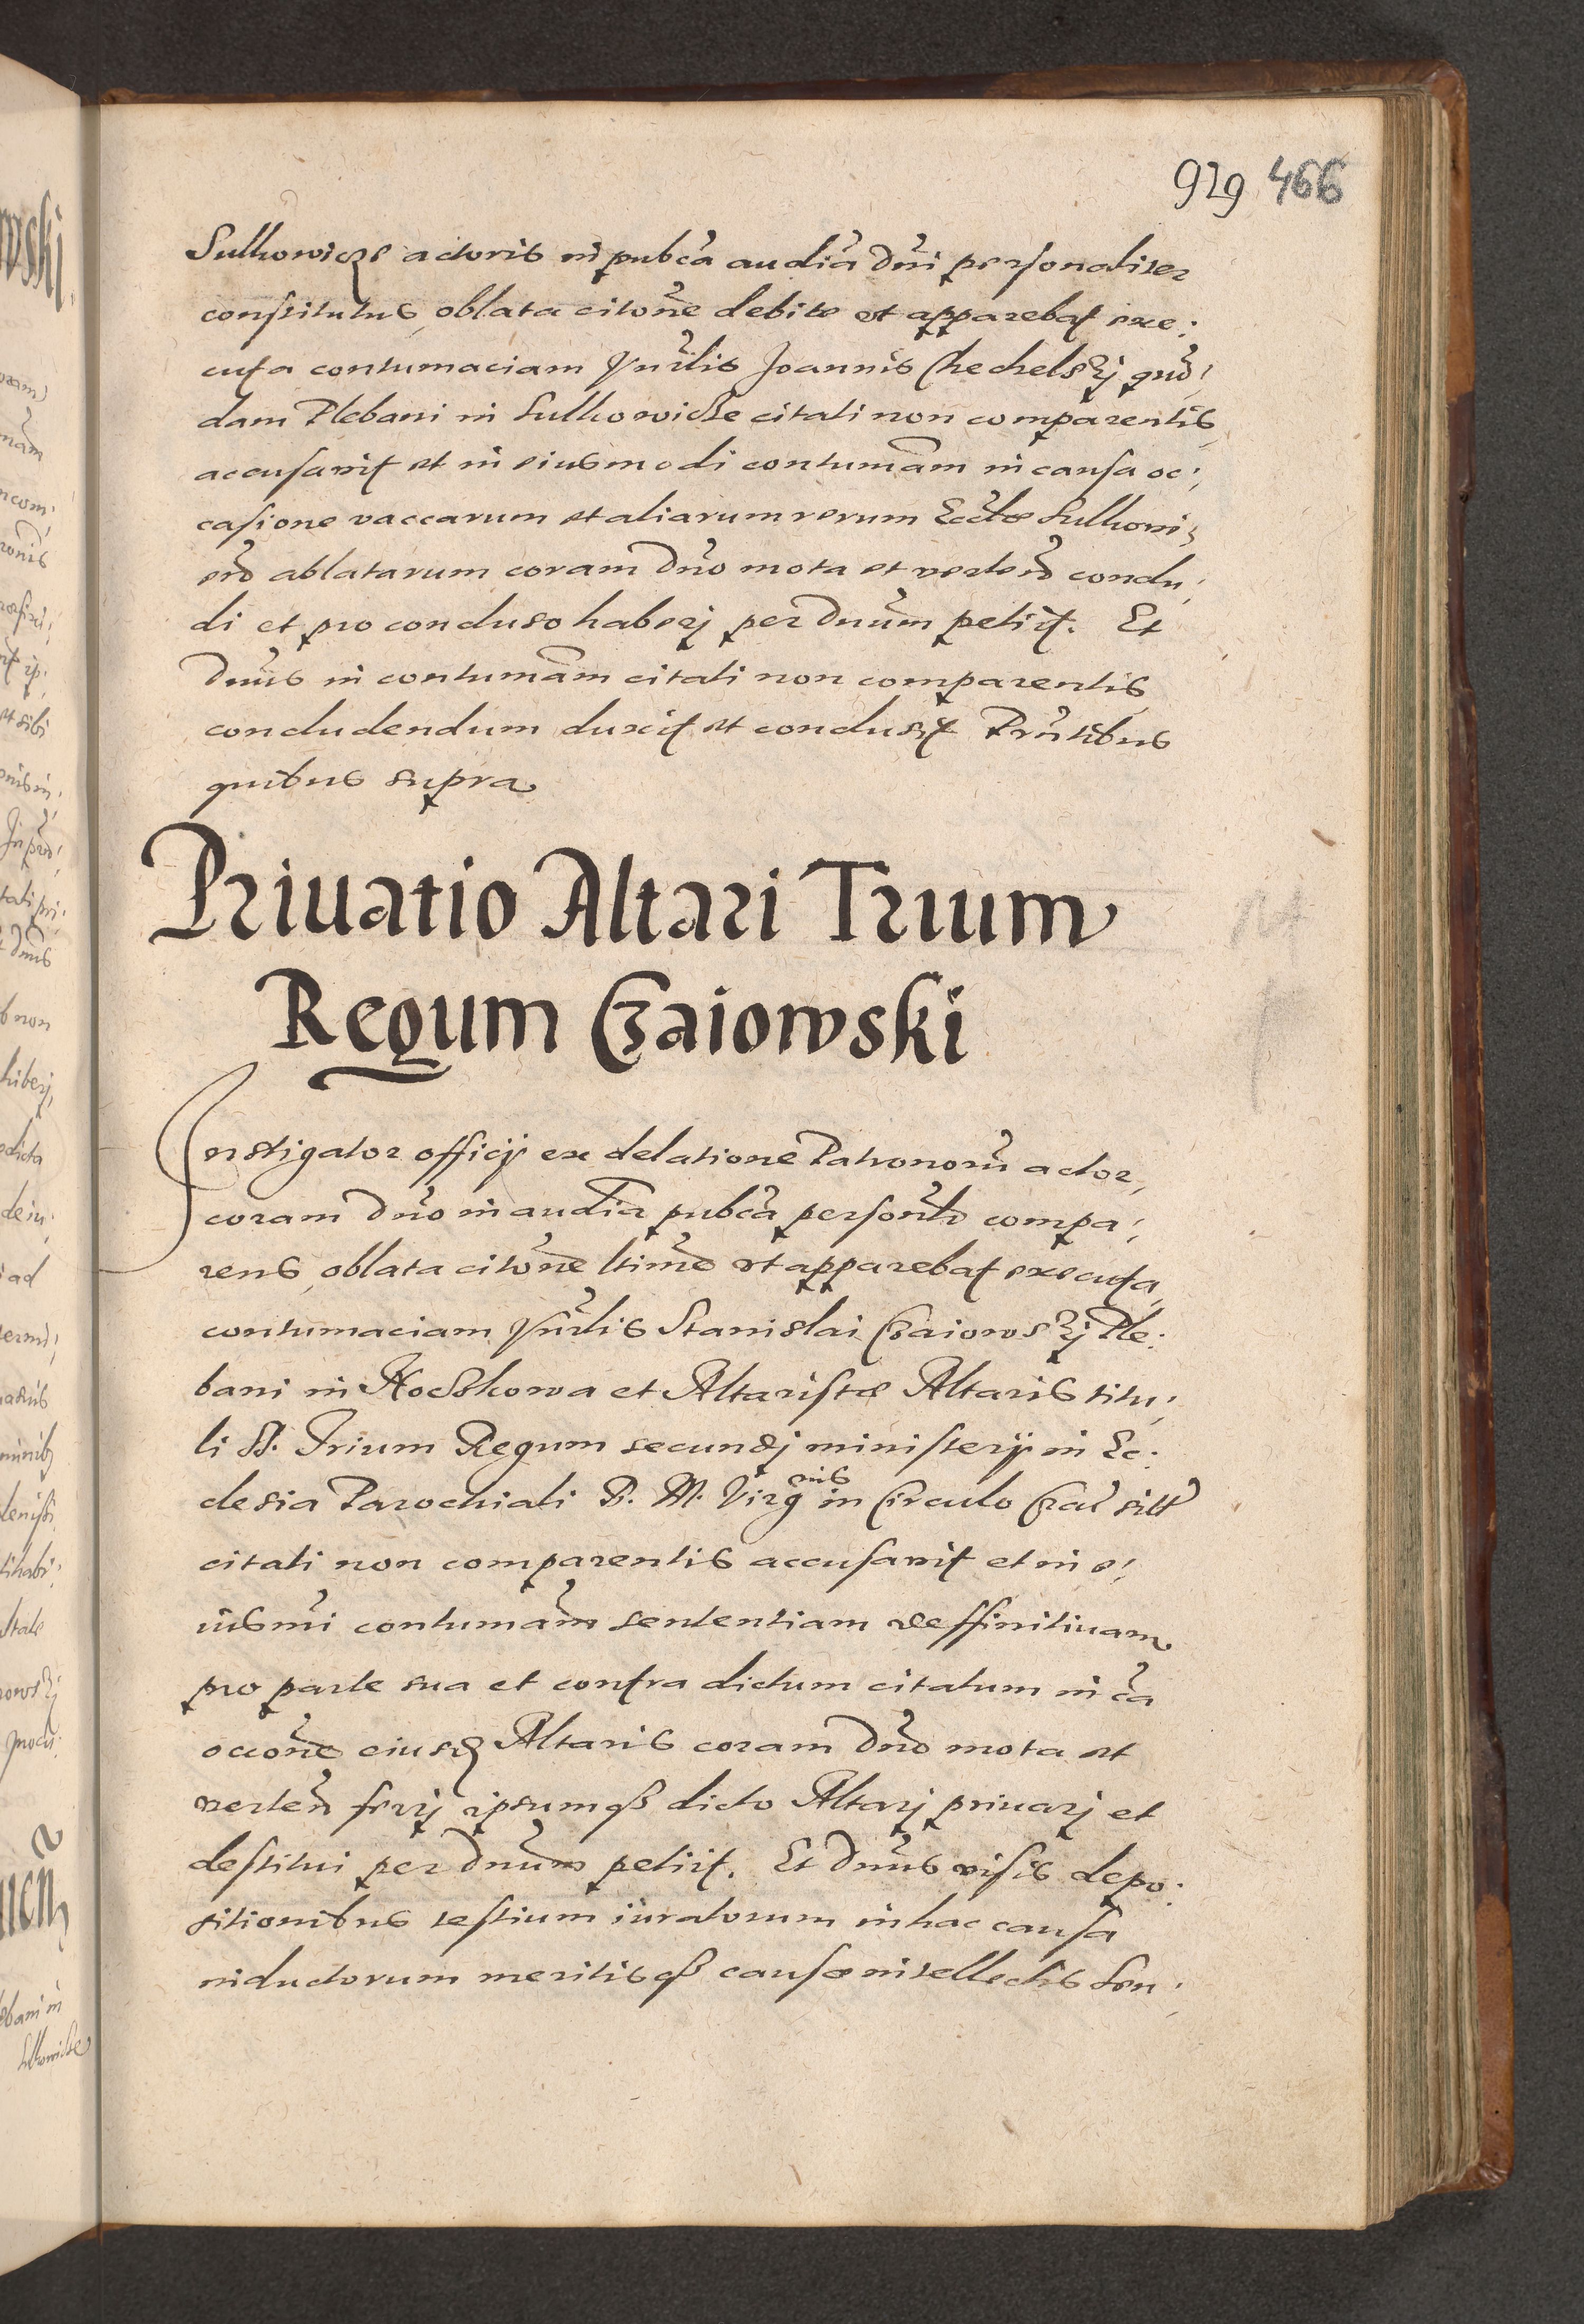 929 466
Sulkowicze actoris in pubca audia dni personaliter
constitutus oblata citone debite ut apparebat exe:
cuta contumaciam Vnrlis Joannis Chechelski quo
dam Plebani in Sulkowicze citati non comparentis
accusavit et in eiusmodi contumam in causa oc,
casione vaccarum et aliarum rerum Eccle Sulkoui,
en ablatarum coram Dno mota et verten conclu,
di et pro concluso haberj per Dnum petiit. Et
Dnus in contumam citati non comparentis
concludendum duxit et conclusit Pntibus
quibus supra
Priuatio Altari Trium
Regum Czaiowski
Instigator officij ex delatione Patronoru actor,
coram Dno in audia pubca personlr compa,
rens oblata citone ltime ut apparebat executa
contumaciam Vnrlis Stanislai Czaiowskj Ple:
bani in et Altaristæ Altaris titu,
li SS. Trium Regum secundj ministerij in Ec:
clesia Parochiali B. M. Virginis in Circulo Crac sitt
citati non comparentis accusavit et in e,
iusmi contumam sententiam deffinitiuam
pro parte sua et contra dictum citatum in ca
occone eiusd Altaris coram Dno mota et
verten ferrj ipsumq dicto Altarj priuarj et
destitui per Dnum petiit. Et Dnus visis depo:
sitionibus testium iuratorum in hac causa
inductorum meritisq causæ intellectis Sen,